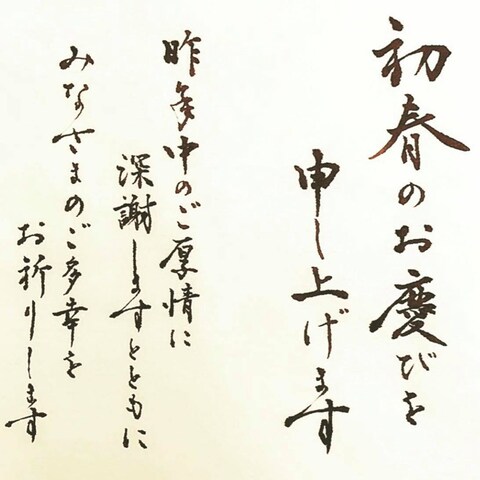 初春のお慶びを
申し上げます
昨年中のご厚情に
深謝しますとともに
みなさまのご多幸を
お祈りします